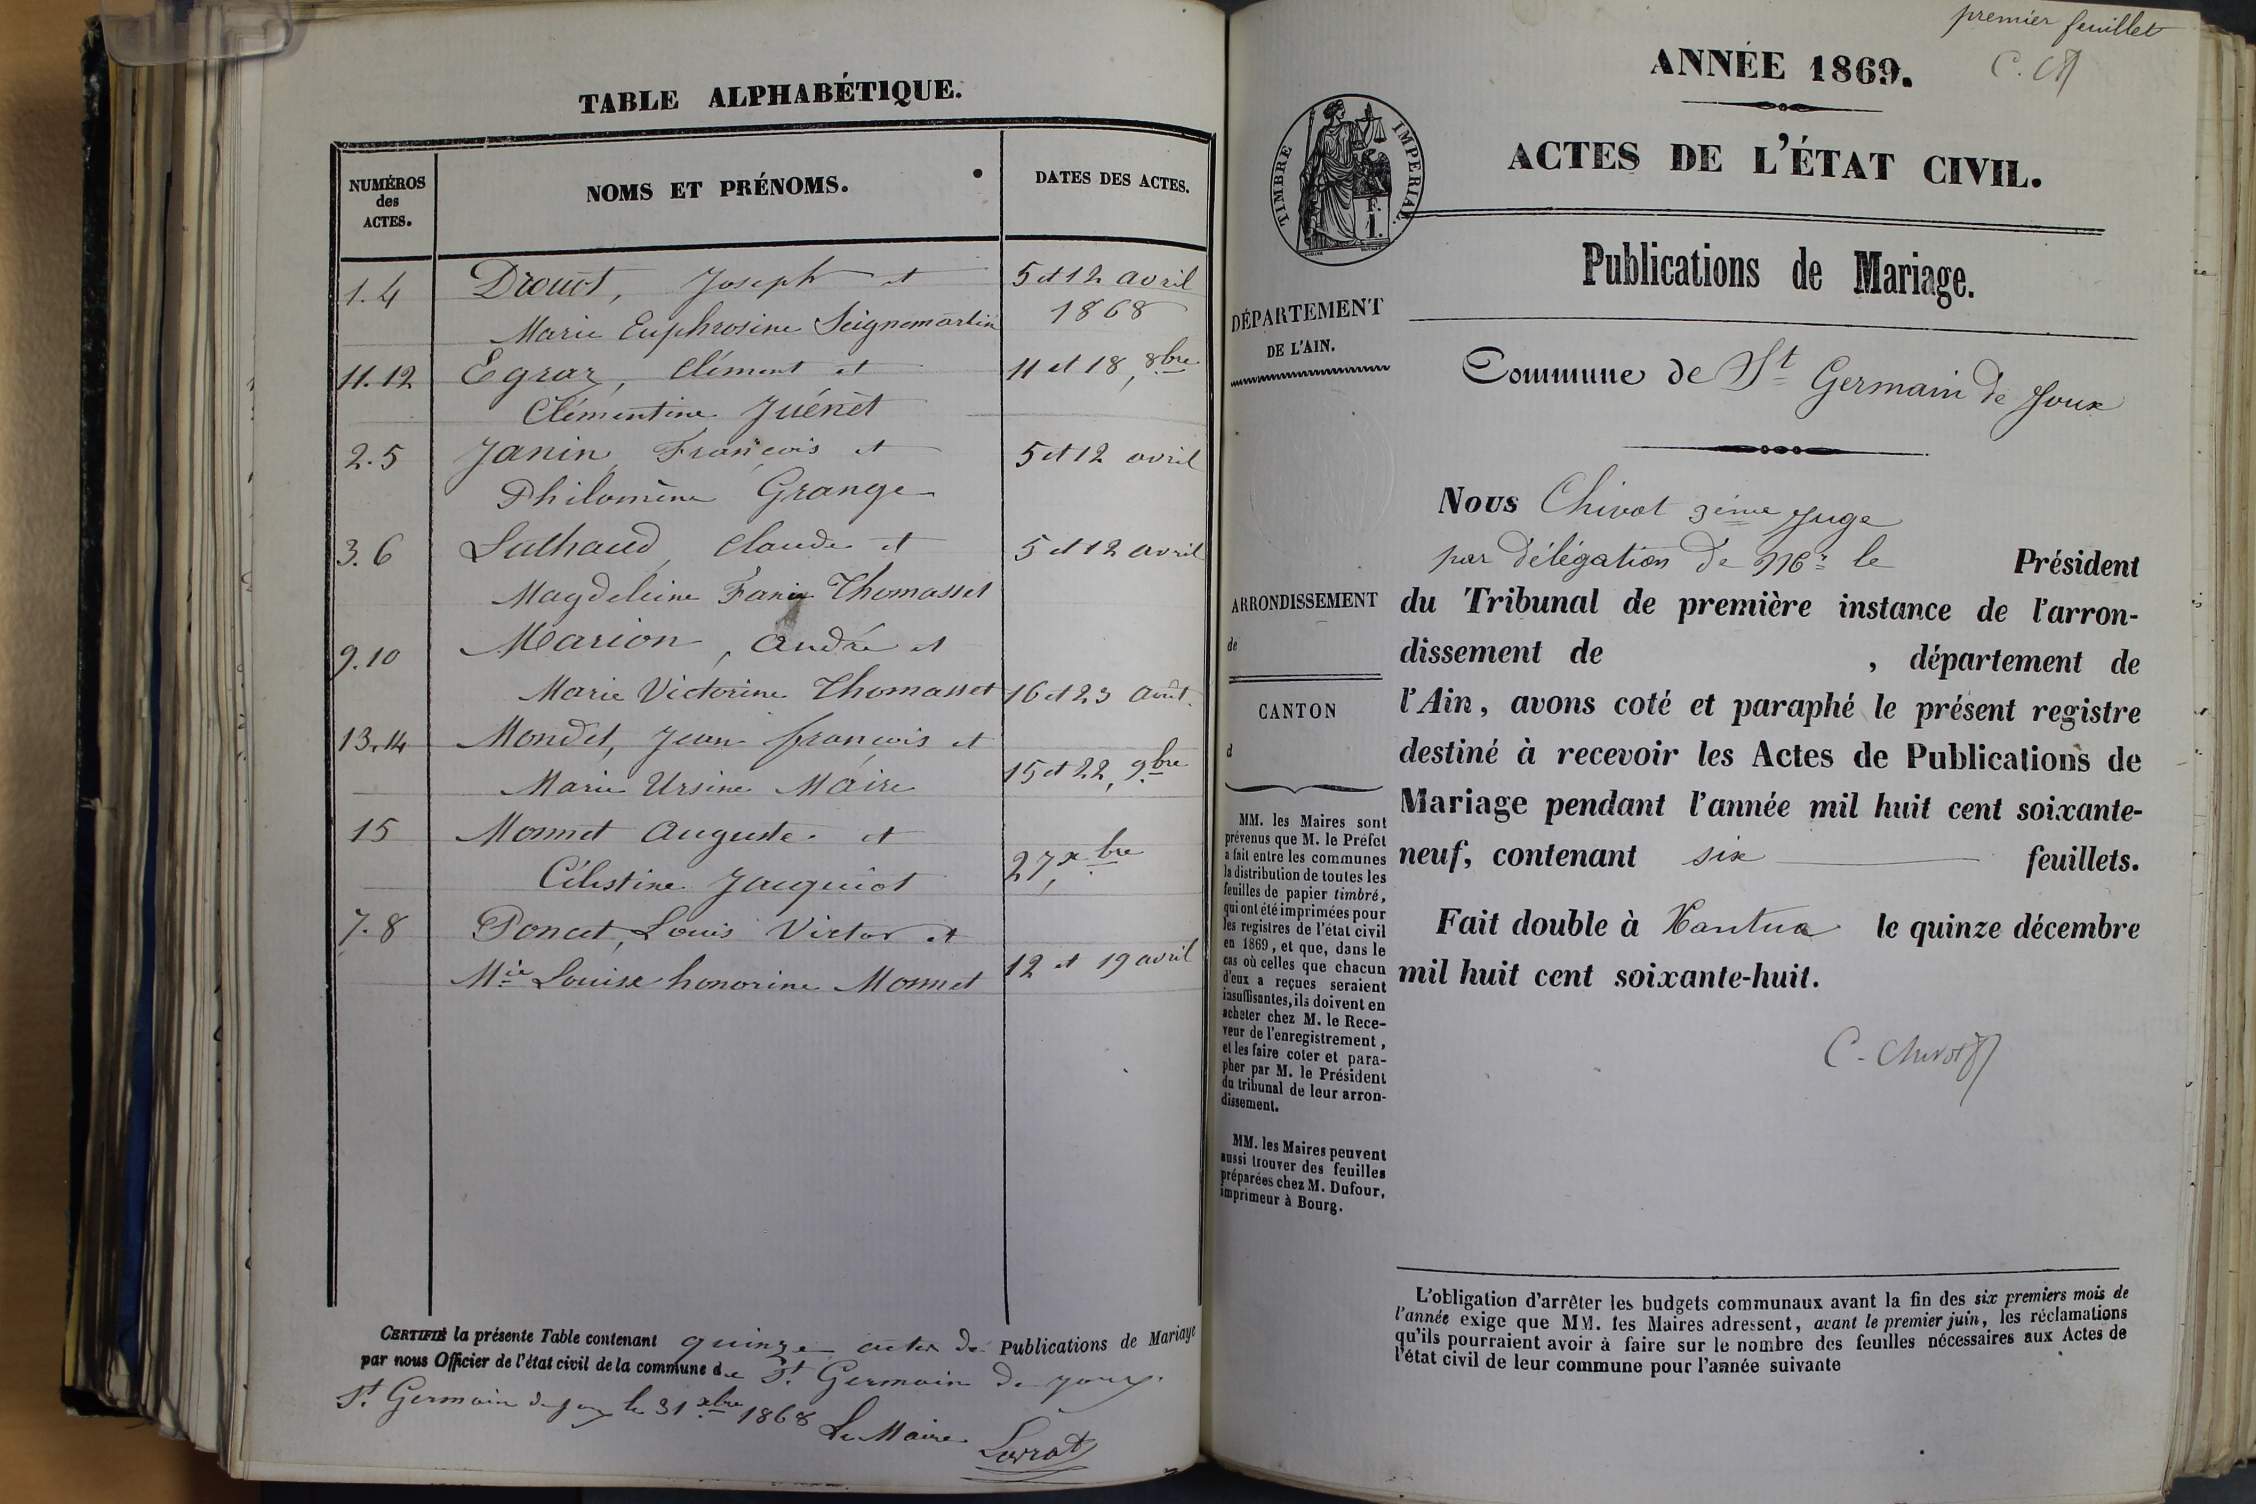 TABLE ALPHABÉTIQUE.
NUMÉROS
des
ACTES.
NOMS ET PRÉNOMS.
DATES DES ACTES.
1.4 Drouot, Joseph et 5 et 12 avril
Marie Euphrosine Seignemartin 1868
11.12 Egraz, Clément et 11 et 18, 8bre
Clémentine Juénet
2.5 Janin, François et 5 et 12 avril
Philomène Grange
3.6 Lathaud, Claude et 5 et 12 avril
Magdeleine Fanie Thomasset
9.10 Marion, André et
Marie Victorine Thomasset 16 et 23 août.
13.14 Mondet, Jean françois et
Marie Ursine Maire 15 et 22, 9bre
15 Monnet Auguste et
Célestine Jacquiot 27, xbre
7.8 Poncet, Louis Victor et
Mie Louise honorine Monnet 12 et 19 avril
CERTIFIÉ la présente Table contenant quinze actes de Publications de Mariage
par nous Officier de l'état civil de la commune de St. Germain de Joux.
St. Germain de Joux le 31 xbre 1868 Le Maire
premier feuillet
ANNÉE 1869.
ACTES DE L'ÉTAT CIVIL.
TIMBRE IMPERIAL
F.
1.
Publications de Mariage.
DÉPARTEMENT
DE L'AIN.
Commune de St Germain de Joux
Nous Chivot 3ème Juge
par délégation de Mr le Président
ARRONDISSEMENT
de
CANTON
d
du Tribunal de première instance de l'arron-
dissement de , département de
l'Ain, avons coté et paraphé le présent registre
destiné à recevoir les Actes de Publications de
Mariage pendant l'année mil huit cent soixante-
neuf, contenant six feuillets.
Fait double à Nantua le quinze décembre
mil huit cent soixante-huit.
C. Chivot
MM. les Maires sont
prévenus que M. le Préfet
a fait entre les communes
la distribution de toutes les
feuilles de papier timbré,
qui ont été imprimées pour
les registres de l'état civil
en 1869, et que, dans le
cas où celles que chacun
d'eux a reçues seraient
insuffisantes, ils doivent en
acheter chez M. le Rece-
veur de l'enregistrement,
et les faire coter et para-
pher par M. le Président
du tribunal de leur arron-
dissement.
MM. les Maires peuvent
aussi trouver des feuilles
préparées chez M. Dufour,
imprimeur à Bourg.
L'obligation d'arrêter les budgets communaux avant la fin des six premiers mois de
l'année exige que MM. les Maires adressent, avant le premier juin, les réclamations
qu'ils pourraient avoir à faire sur le nombre des feuilles nécessaires aux Actes de
l'état civil de leur commune pour l'année suivante